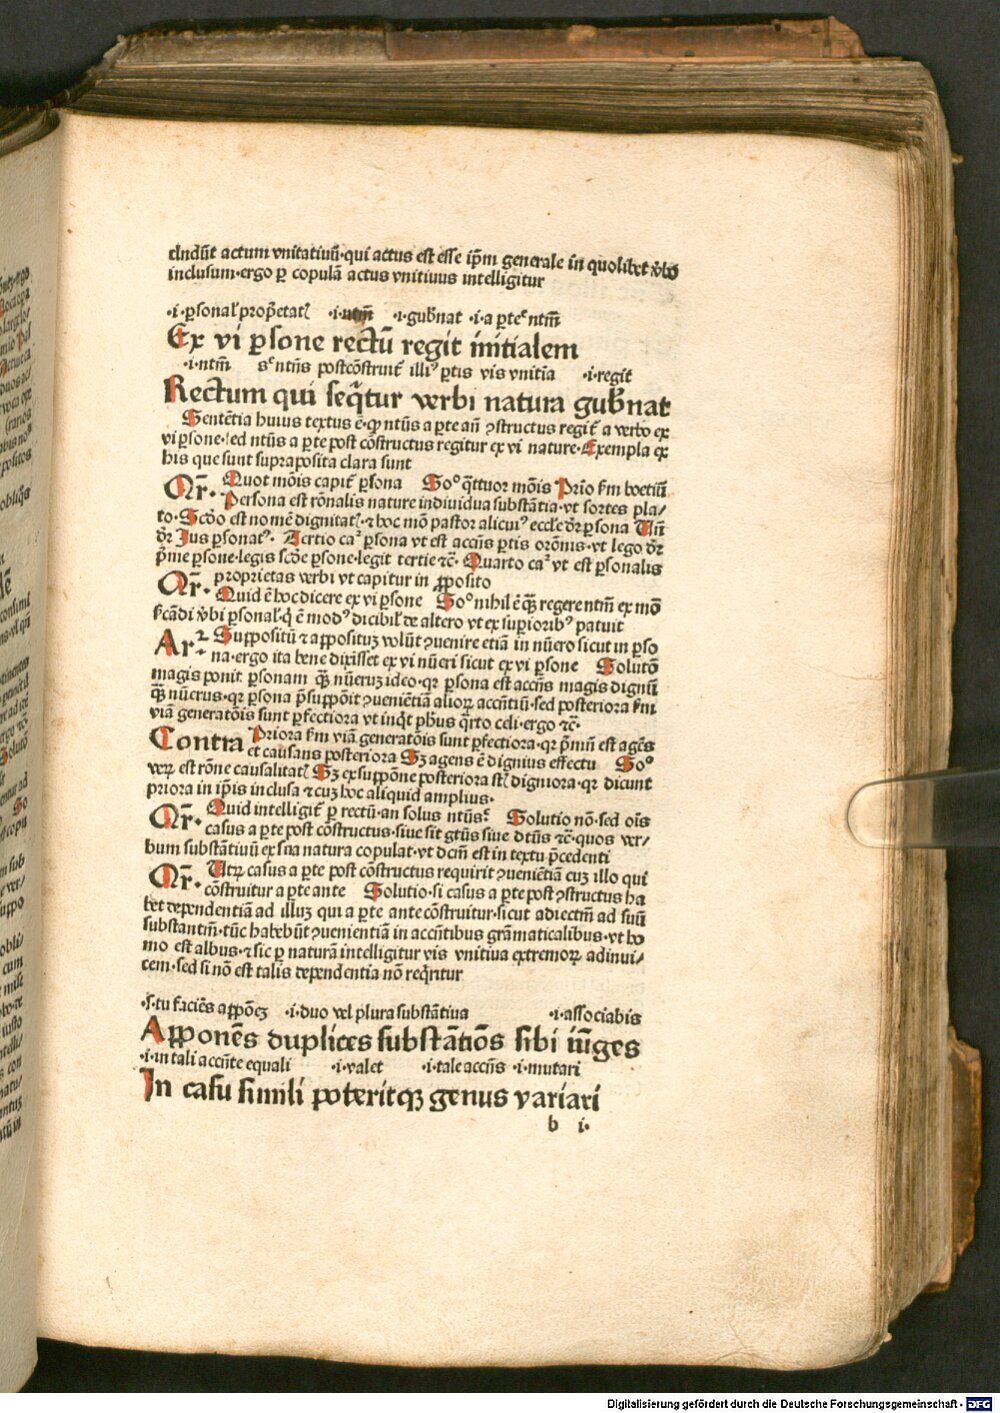 cludūt actum vnitatiuū·qui actus est esse ip̄m generale in quolibet v̓bo
inclusum·ergo ꝑ copulā actus vnitiuus intelligitur
·i·ꝑsonal̓ prop̓etatꝭ ·i·ntm̄ ·i·gub̓nat ·i·a ꝑte ntm̄
Ex vi ꝑsone rectū regit initialem
·i·ntm̄ ntūs postcōstruit̉ illiꝰ ꝑtis vis vnitia ·i·regit
Rectum qui seq̄tur verbi natura gub̓nat
Sentētia huius textus ē·ꝙ ntūs a ꝑte an̄ ꝯstructus regit̉ a verbo ex
vi ꝑsone·sed ntūs a ꝑte post cōstructus regitur ex vi nature·Exempla ex
his que sunt supraposita clara sunt
Qr̄· Quot mōis capit̉ ꝑsona Soᵒ q̄ttuor mōis Prīo ẜm boetiū
Persona est rōnalis nature indiuidua substātia·vt sortes pla/
to·Scd̄o est nomē dignitatꝭ·⁊ hoc mō pastor alicuiꝰ eccl̓e dr̄ ꝑsona Vn̄
dr̄ Ius ꝑsonatꝰ· Tertio caꝰ ꝑsona vt est accn̄s ꝑtis orōnis·vt lego dr̄
p̄me ꝑsone·legis scd̄e ꝑsone·legit tertie ⁊c̄· Quarto caꝰ vt est ꝑsonalis
proprietas verbi vt capitur in ꝓposito
Qr̄· Quid ē hoc dicere ex vi ꝑsone Soᵒ nihil ē q̄ꝫ regere ntm̄ ex mō
ẜcādi v̓bi ꝑsonal̓·q̓ ē modꝰ dicibil̓ de altero vt ex suꝑioribꝰ patuit
Arᵗ· Suppositū ⁊ apposituꝫ volūt ꝯuenire etiā in nūero sicut in ꝑso
na·ergo ita bene dixisset ex vi nūeri sicut ex vi ꝑsone Solutō
magis ponit̉ ꝑsonam q̄ꝫ nūeruꝫ ideo·qꝛ ꝑsona est accn̄s magis dignū
q̄ꝫ nūerus·qꝛ ꝑsona p̄suppōit ꝯueniētiā alioꝝ accn̄tiū·sed posteriora ẜm
viā generatōis sunt ꝑfectiora vt inq̓t ph̄us q̄rto celi·ergo ⁊c̄·
Contra Priora ẜm viā generatōis sunt ꝑfectiora·qꝛ p̄mū est agēs
et causans posteriora Sꝫ agens ē dignius effectu Soᵒ
veꝝ est rōne causalitatꝭ Sꝫ ex suppōne posteriora sꝭ digniora·qꝛ dicunt
priora in ip̄is inclusa ⁊ cuꝫ hoc aliquid amplius·
Qr̄· Quid intelligit̉ ꝑ rectū·an solus ntūs Solutio nō·sed ois̄
casus a ꝑte post cōstructus·siue sit gtūs siue dtūs ⁊c̄·quos ver/
bum substātiuū ex sua natura copulat·vt dcm̄ est in textu p̄cedenti
Qr̄· Vtꝝ casus a ꝑte post cōstructus requirit ꝯueniētiā cuꝫ illo qui
cōstruitur a ꝑte ante Solutio·si casus a ꝑte post ꝯstructus ha
bet dependentiā ad illuꝫ qui a ꝑte ante cōstruitur·sicut adiectm̄ ad suū
substantm̄·tūc habebūt ꝯuenientiā in accn̄tibus grāmaticalibus·vt ho
mo est albus·⁊ sic ꝑ naturā intelligitur vis vnitiua extremoꝝ adinui/
cem·sed si nō est talis dependentia nō req̓ritur
·ſ·tu faciēs appōeꝫ ·i·duo vel plura substātiua ·i·associabis
Apponēs duplices substātiōs sibi iūges
·i·in tali accn̄te equali ·i·valet ·i·tale accn̄s ·i·mutari
In casu simili poteritqꝫ genus variari
b i·
Digitalisierung gefördert durch die Deutsche Forschungsgemeinschaft - DFG